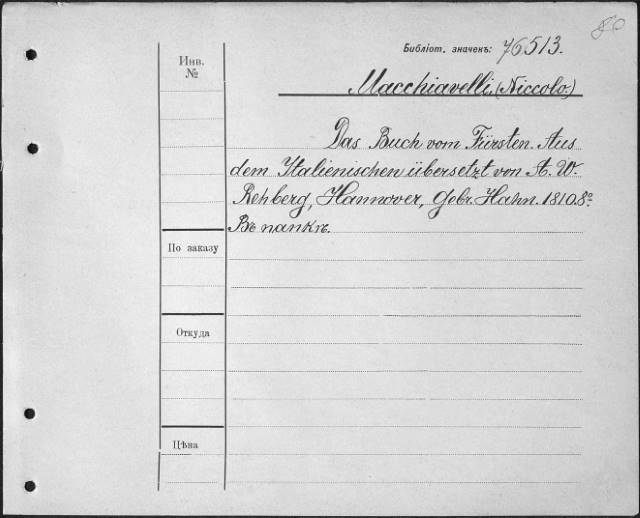 Библіот. значекъ: 76513.
Инв.
№
Macchiavelli, (Niccolo.)
Das Buch vom Fürsten. Aus
dem Italienischen übersetzt von A. W.
Rehberg, Hannover, Gebr. Hahn. 1810. 8º
Въ папкѣ.
По заказу
Откуда
Цѣна